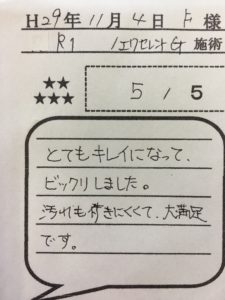 H29年11月4日 F 様
R1 / エクセレントGt 施術
★★
★★★
5 / 5
とてもキレイになって、
ビックリしました。
汚れも付きにくくて、大満足
です。